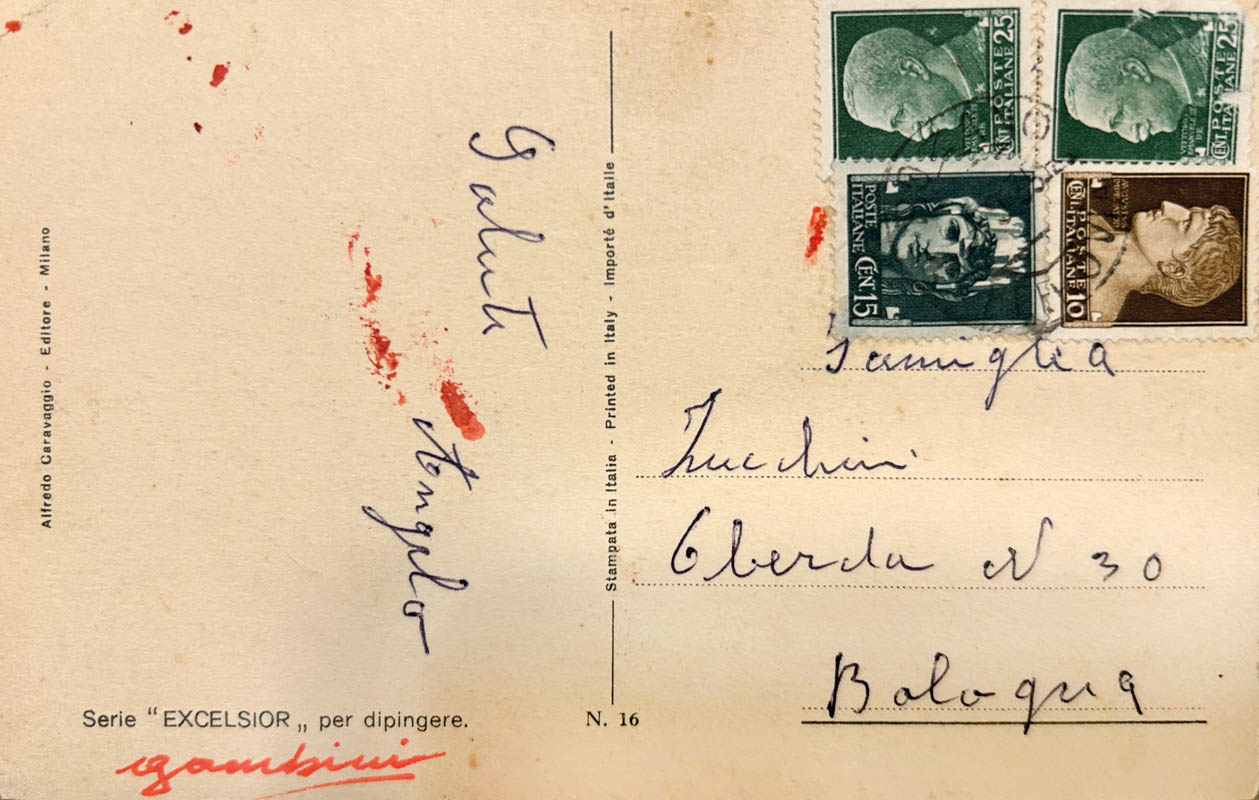 Alfredo Caravaggio - Editore - Milano
Saluti
Angelo
Serie “EXCELSIOR„ per dipingere.
gambini
Stampata in Italia - Printed in Italy - Importé d'Italie
N. 16
POSTE ITALIANE CENT 25
POSTE ITALIANE CENT 25
POSTE ITALIANE CEN. 15
POSTE ITALIANE CENT 10
Famiglia
Zucchini
Oberda N 30
Bologna